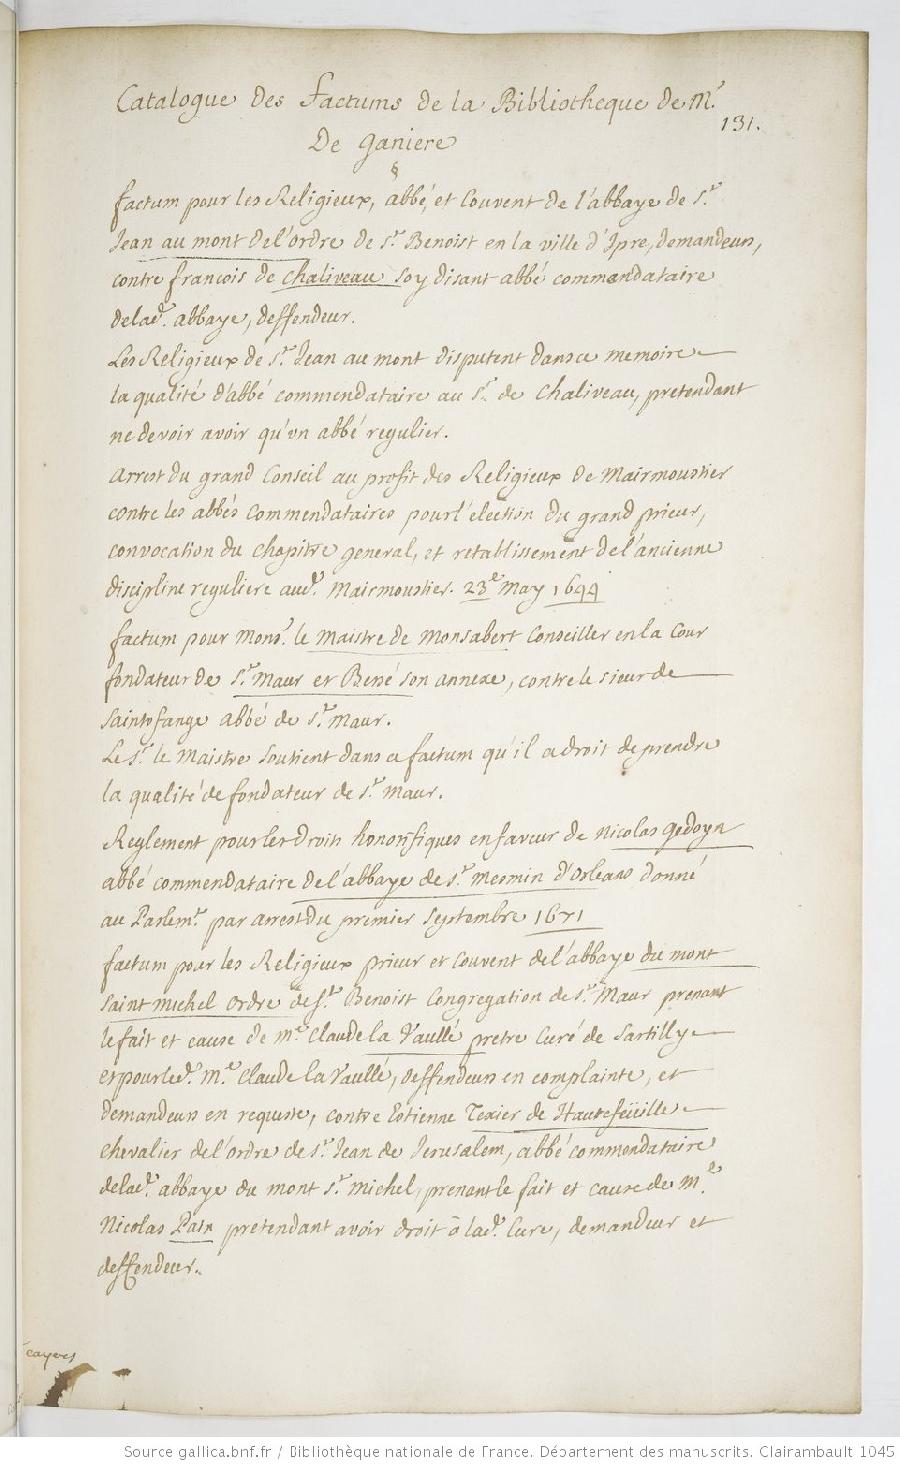 Catalogue des factums de la Bibliotheque de mr.
131.
De ganiere
§
factum pour les Religieux, abbé, et Couvent de l'abbaye de St.
Jean au mont de l'ordre de St. Benoist en la ville d'Ipre, demandeurs,
contre francois de Chaliveau soy disant abbé commendataire
delade. abbaye, deffendeur.
Les Religieux de St. Jean au mont disputent dans ce memoire
la qualité d'abbé commendataire au Sr. de Chaliveau, pretendant
ne devoir avoir qu'un abbé regulier.
Arrest du grand Conseil au profit des Religieux de Mairmoustier
contre les abbés Commendataires pour l'election du grand prieur,
convocation du chapitre general, et retablissement de l'ancienne
discipline reguliere aude. Mairmoustier. 23e. May 1644
factum pour Monsr. le Maistre de Monsabert Conseiller en la Cour
fondateur de St. Maur et Bené son annexe, contre le sieur de
Saintofange abbé de St. Maur.
Le Sr. le Maistre soutient dans ce factum qu'il a droit de prendre
la qualité de fondateur de St. Maur.
Reglement pour les droits honorifiques en faveur de Nicolas Gedoyn
abbé commendataire de l'abbaye de St. Mesmin d'Orleans donné
au Parlemt. par arrest du premier Septembre 1671
factum pour les Religieux prieur et couvent de l'abbaye du mont
Saint Michel Ordre de St. Benoist Congregation de St. Maur prenant
le fait et cause de Me. Claude la Vaullé pretre Curé de Sartilly
et pour led. Me. Claude la Vaullé, deffendeurs en complainte, et
demandeurs en requeste, contre Estienne Texier de Hautefeüille
chevalier de l'ordre de St. Jean de Jerusalem, abbé commendataire
delade. abbaye du mont St. Michel, prenant le fait et cause de Me.
Nicolas Pain pretendant avoir droit à lade. Cure, demandeur et
deffendeur.
cayers
Source gallica.bnf.fr / Bibliothèque nationale de France. Département des manuscrits. Clairambault 1045